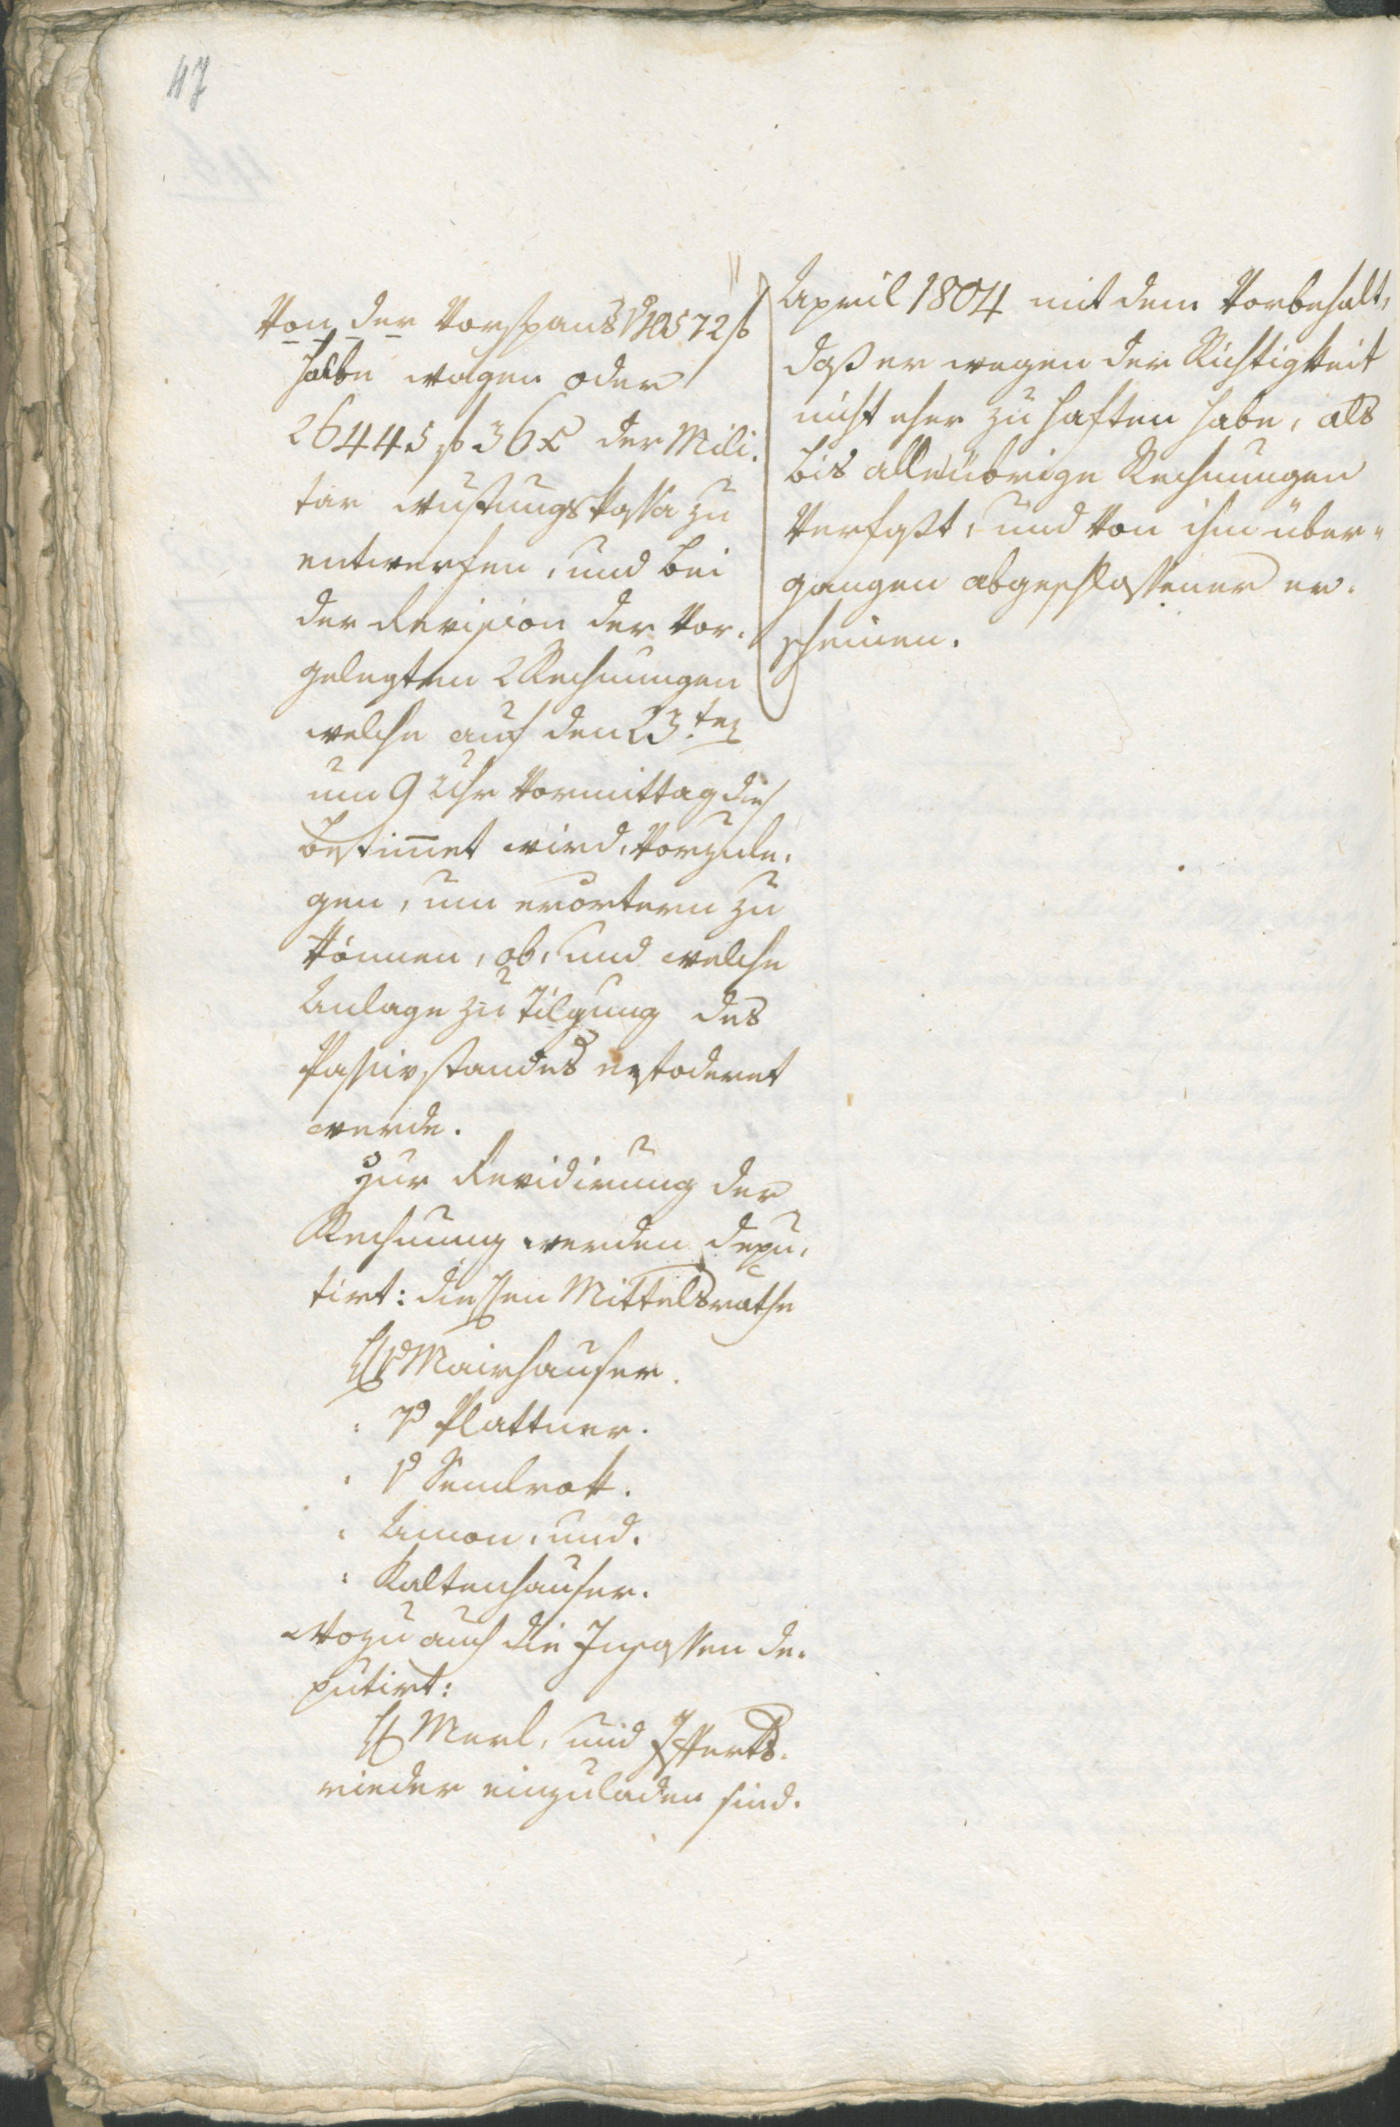 47
Von der Vorspans
halbe wagen oder
26445 f 36 x der Mili-
tar rustungskassa zu
entwerfen, und bei
der Revision der vor-
gelegten Rechnungen
welche auf den 23.ten
um 9 Uhr Vormittag
bestimet wird, vorzule-
gen, um erörtern zu
können, ob, und welche
Anlage zu Tilgung des
Passivstandes
werde.
Zur Revidirung der
Rechnung werden depu-
tirt: Mittelsrathe
Mairhauser.
: Plattner.
:
: Amon, und.
: Kaltenhauser.
Wozu auch die Insassen de-
putirt:
Merl, und
rieder einzuladen sind.
April 1804 mit dem Vorbehalt,
daß er wegen der Richtigkeit
nicht eher zu haften habe, als
bis alle übrige Rechnungen
verfaßt, und von ihm über-
gangen abgeschlossener er-
scheinen.